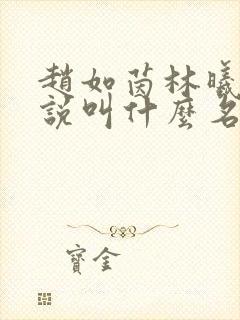 趙如茵林曦
說叫什麼名
寶金